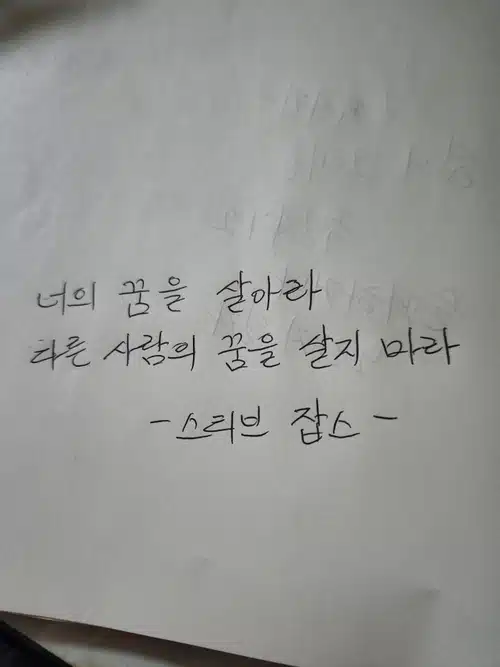 너의 꿈을 살아라
다른 사람의 꿈을 살지 마라
-스티브 잡스-